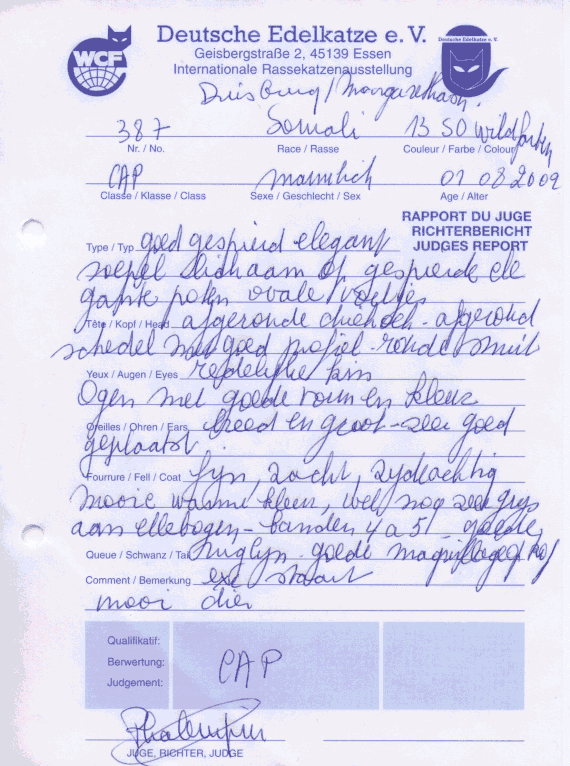 WCF
Deutsche Edelkatze e. V.
Deutsche Edelkatze e. V.
Geisbergstraße 2, 45139 Essen
Internationale Rassekatzenausstellung
Duisburg /
387 Somali 13 SO wildfarben
Nr. / No. Race / Rasse Couleur / Farbe / Colour
CAP mannlich 01 08 2009
Classe / Klasse / Class Sexe / Geschlecht / Sex Age / Alter
RAPPORT DU JUGE
RICHTERBERICHT
JUDGES REPORT
Type / Typ goed gespierd elegant
soepel lichaam op gespierde ele
gante poten ovale voetjes
Tête / Kopf / Head afgeronde driehoek - afgerond
schedel met goed profiel - ronde snuit
Yeux / Augen / Eyes redelijke kin
Ogen met goede vorm en kleur
Oreilles / Ohren / Ears breed en groot - zeer goed
geplaatst.
Fourrure / Fell / Coat fijn, zacht, zydeachtig
mooie warme kleur, wel nog zeer grijs
aan ellebogen - banden 4 a 5 - goede
Queue / Schwanz / Tail ruglijn - goede maquillage
Comment / Bemerkung exc staart
mooi dier
Qualifikatif:
Berwertung: CAP
Judgement:
JUGE, RICHTER, JUDGE